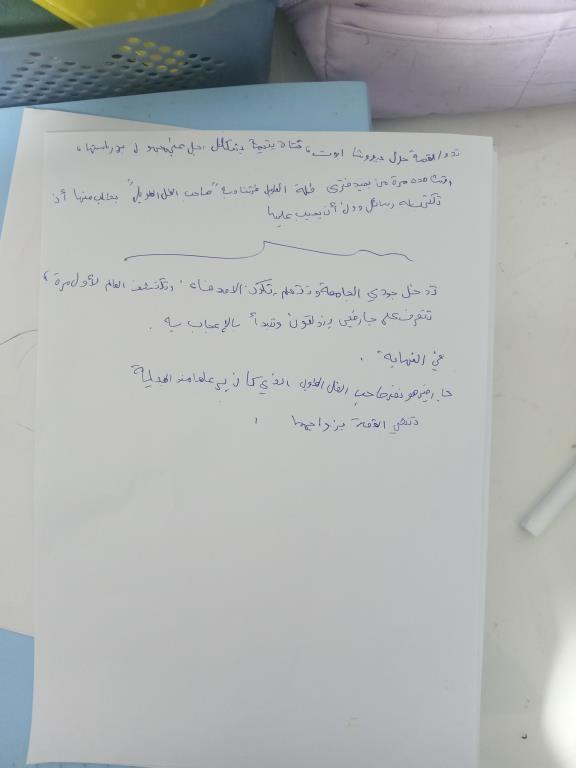 تدور القصة حول جيروشا ابوت، فتاة يتيمة
مرة من بعيد فترى ظله الطويل "صاحب الظل الطويل" يطلب منها أن
تكتب له رسائل دون أن يجيب عليها
تدخل جودي الجامعة وتتعلم، تكون الاصدقاء، وتكتشف العالم لأول مرة،
تتعرف على جارفيس بندلتون وتبدأ بالإعجاب به.
في النهاية:
جارفيس هو نفسه صاحب الظل الطويل الذي كان يرعاها منذ البداية
تنتهي القصة بزواجهما.